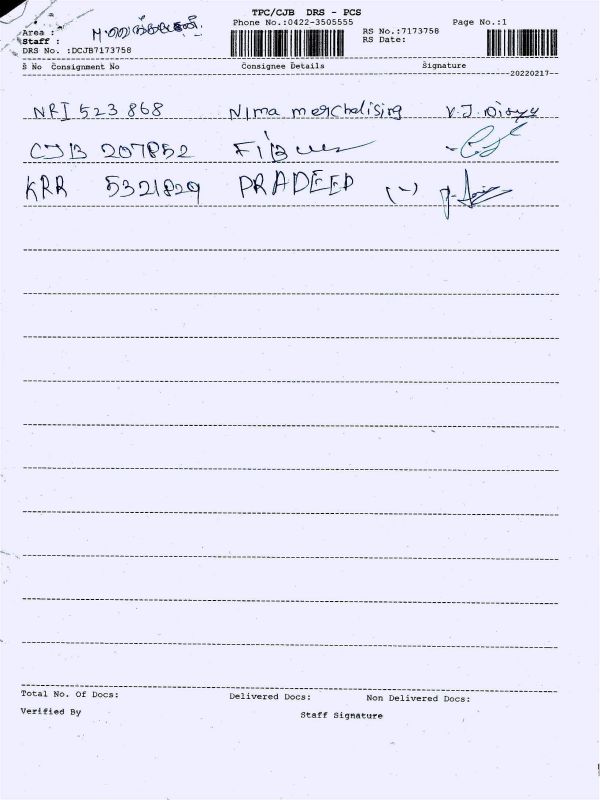 TPC/CJB DRS - PCS
Phone No.:0422-3505555 Page No.:1
Area :
Staff :
RS No.:7173758
RS Date:
DRS No. :DCJB7173758
S No Consignment No Consignee Details Signature
20220217
NRI 523 868 Nima merchalising V.J. Divya
CJB 207852
KRR 5321829 PRADEEP (-)
Total No. Of Docs: Delivered Docs: Non Delivered Docs:
Verified By Staff Signature